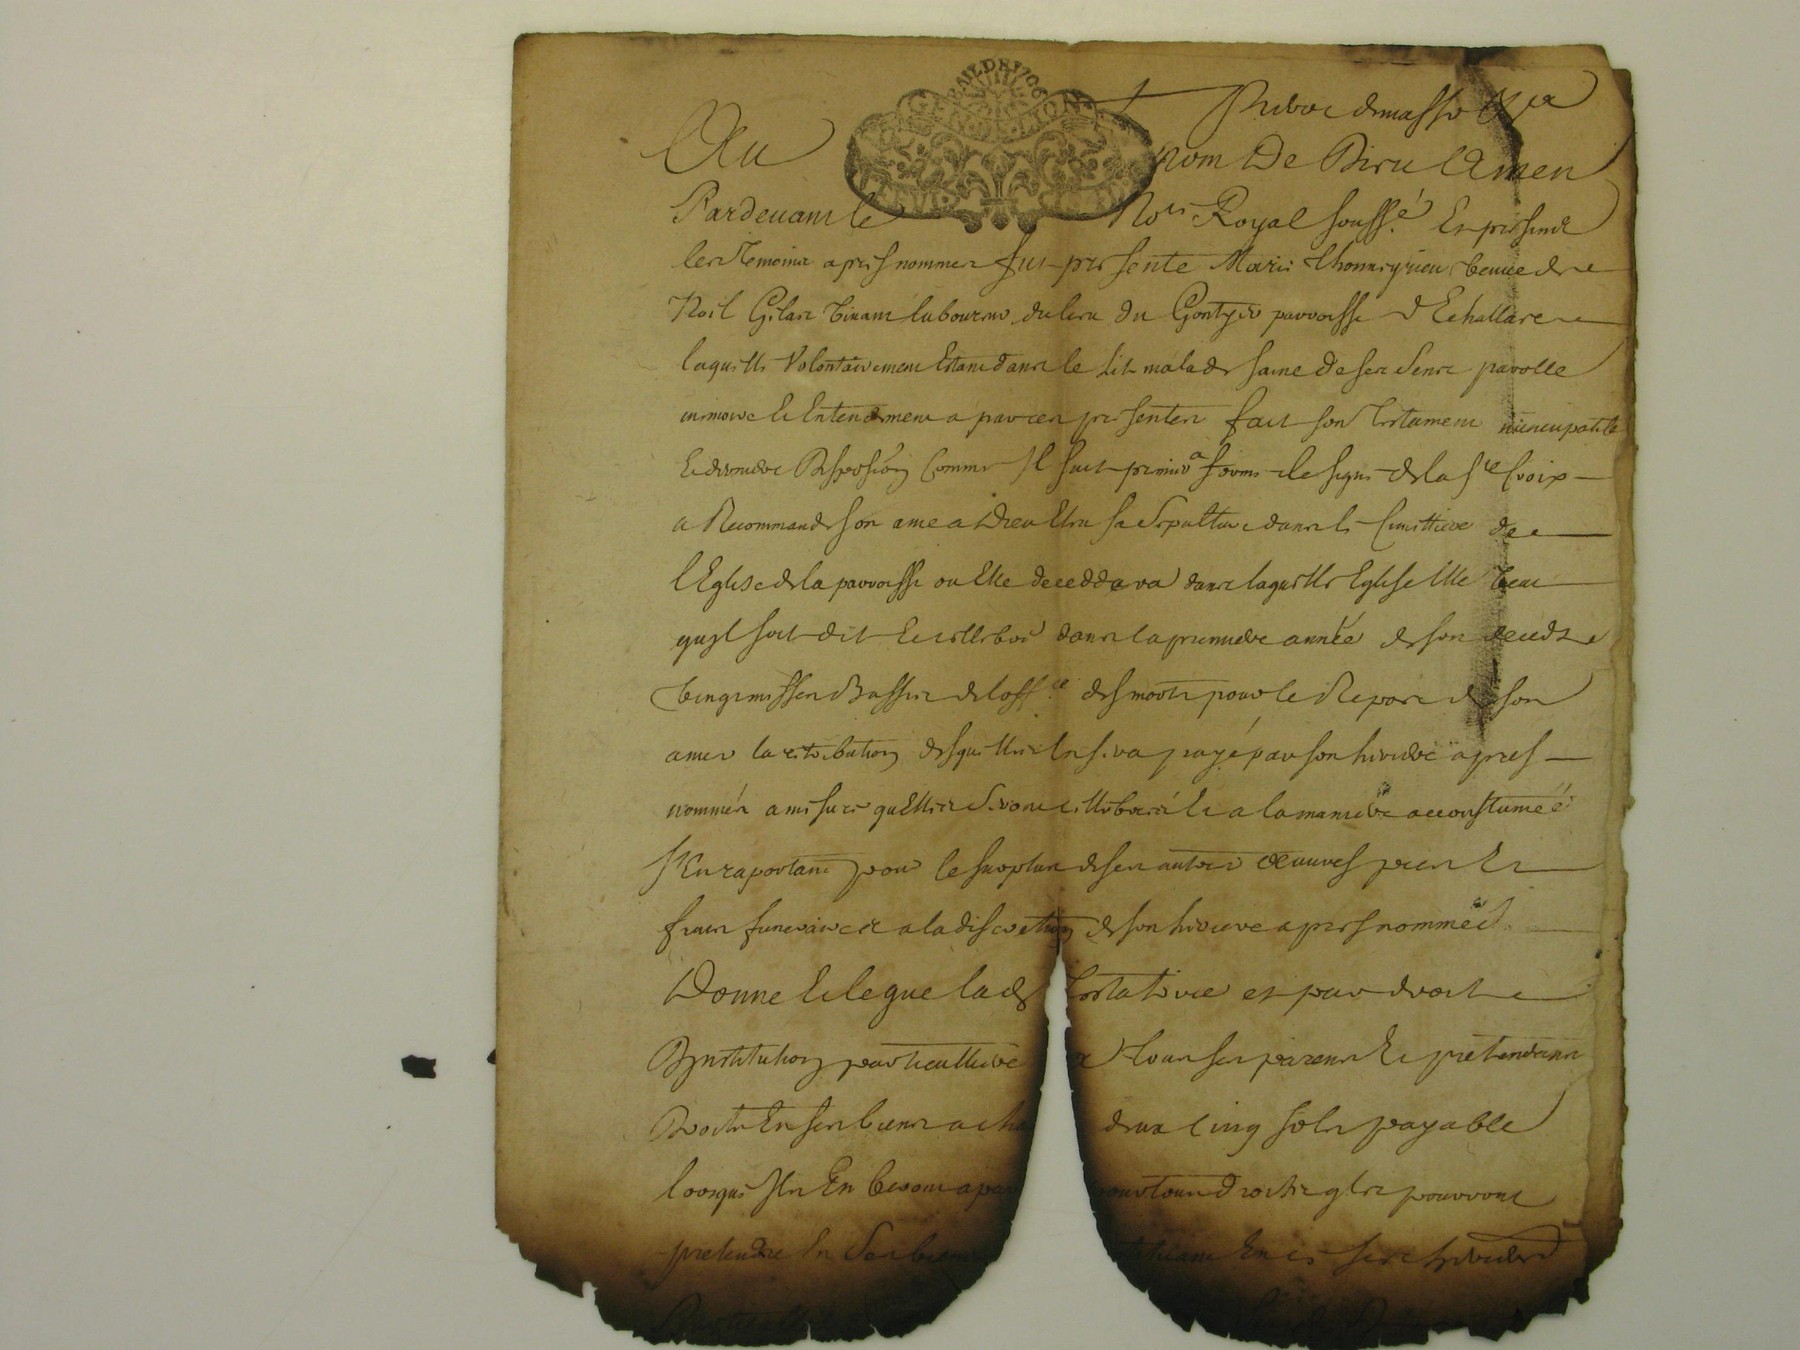 BAIL DE 1706
GENERATION
Au nom De Dieu Amen
Pardevant le No.re Royal soussé. En presence
les Temoins apres nommes fut presente Marie veuve de
Noel Gilar vivant laboureur du lieu du parroisse d'Echallas
laquelle Volontairement Estant dans le Lit malade saine de ses Sens parolle
memoire Et Entendement a par ces presentes fait son Testament nuncupatif
Et derniere Disposion Comme Il suit primo a forme le signe de la Ste Croix
a Recommande son ame a Dieu Elu sa Sepulture dans le Cimittiere de
l'Eglise de la parroisse ou Elle deceddera dans laquelle Eglise Elle veut
quyl soit dit Et cellebré dans la premiere année de son decedz
vingt messes Basses de loffce des morts pour le Repos de son
ame la retribution desquelles sera payé par son heritiere apres
nommée a mesure quElles Seront cellebrées Et a la maniere accoustumée
S'En raportant pour le surplus de ses autres oeuvres pies Et
frais funeraires a la discretion de son heritiere apres nommée
Donne Et legue lade Testatrice et par droit
D'ynstitution particulliere a Tous ses parens Et pretendans
Droits En ses biens a cha d'eux cinq sols payable
lorsque Ils En feront apar pour tous droits qu'ils pourront
pretendre En Ses biens En ce ses heritiers